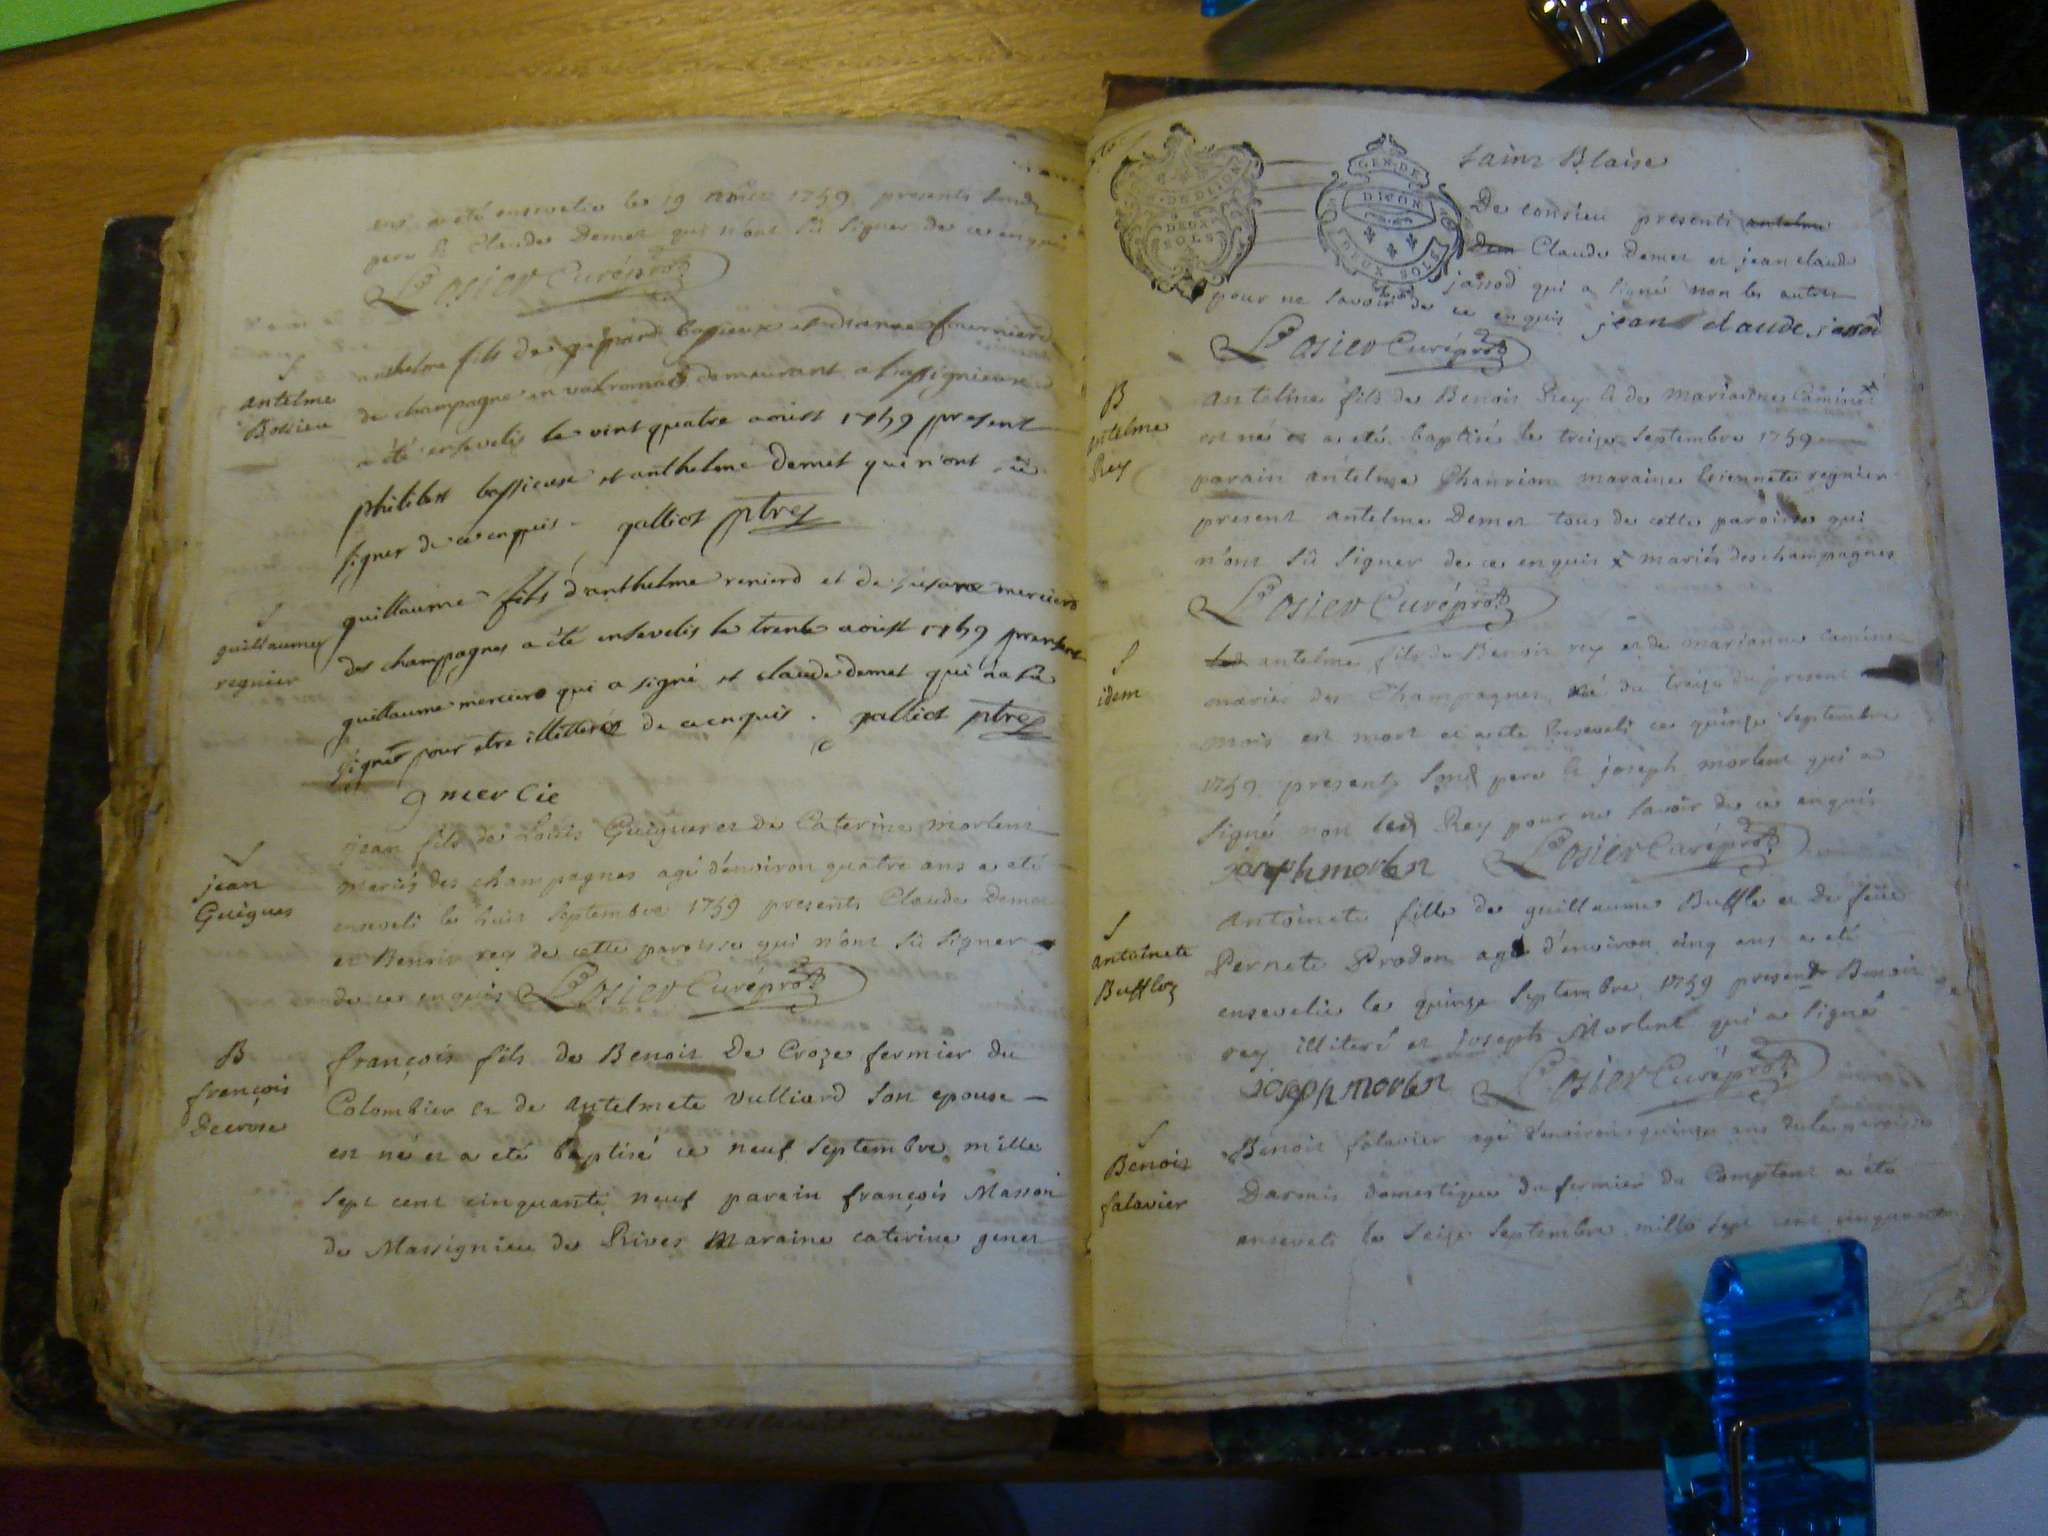 a eté ensevelie le 19 1759 presents
pere & Claude Demet qui n'ont sû signer de ce enquis
Losier Curé
S
antelme
Bossieu
anthelme fils de bossieux et fournier
de champagne en valromais demeurant a Massignieux
a été ensevelis le vint quatre aoust 1759 present
philibert bossieux et anthelme demet qui n'ont sû
signer de ce enquis. galliot ptre
S
guillaume
regnier
guillaume fils d'anthelme renierd et de susane mercier
des champagnes a été ensevelis le trente aoust 1759 present
guillaume mercier qui a signé et claude demet qui n'a sû
signer pour etre illitteré de ce enquis. galliot ptre
g mercie
S
jean
Guigues
jean fils de Louis Guigues et de Caterine morlens
mariés des champagnes agé d'environ quatre ans a eté
enseveli le huit septembre 1759 presents Claude Demet
et Benoit rey de cette paroisse qui n'ont sû signer
de ce enquis Losier Curé
B
françois
Decrose
françois fils de Benoit De Croze fermier du
Colombier et de antelmete vulliard son epouse
est né et a eté baptisé ce neuf septembre mille
sept cent cinquante neuf parain françois Masson
de Massignieu de Rives maraine caterine genet
GEN. DE DIJON
DEUX SOLS
GEN. DE
DIJON
DEUX SOLS
saint Blaise
De consieu presents antelme
Dem Claude Demet et jean claude
jassod qui a signé non les autres
pour ne savoir de ce enquis jean claude jassod
Losier Curé
B
antelme
Rey
antelme fils de Benoit Rey & de marianne
est né et a eté baptisé le treize septembre 1759
parain antelme Chanrion maraine regnier
present antelme Demet tous de cette paroisse qui
n'ont sû signer de ce enquis x mariés des champagnes
Losier Curé
S
idem
led antelme fils de Benoit rey et de marianne
mariés des Champagnes né du treize du present
mois est mort et a eté enseveli ce quinze septembre
1759 presents sond pere & joseph morlent qui a
signé non led Rey pour ne savoir de ce enquis
joseph morlen Losier Curé
S
antoinete
Buffle
antoinete fille de guillaume Buffle et de feüe
Pernete Prodon agé d'environ cinq ans a eté
ensevelie le quinze septembre 1759 present Benoit
rey illiteré et joseph Morlent qui a signé
joseph morlen Losier Curé
S
Benoit
falavier
Benoit falavier agé d'environ quinze ans de la paroisse
Darmis domestique du fermier de Comptent a eté
enseveli le seize septembre mille sept cent cinquante